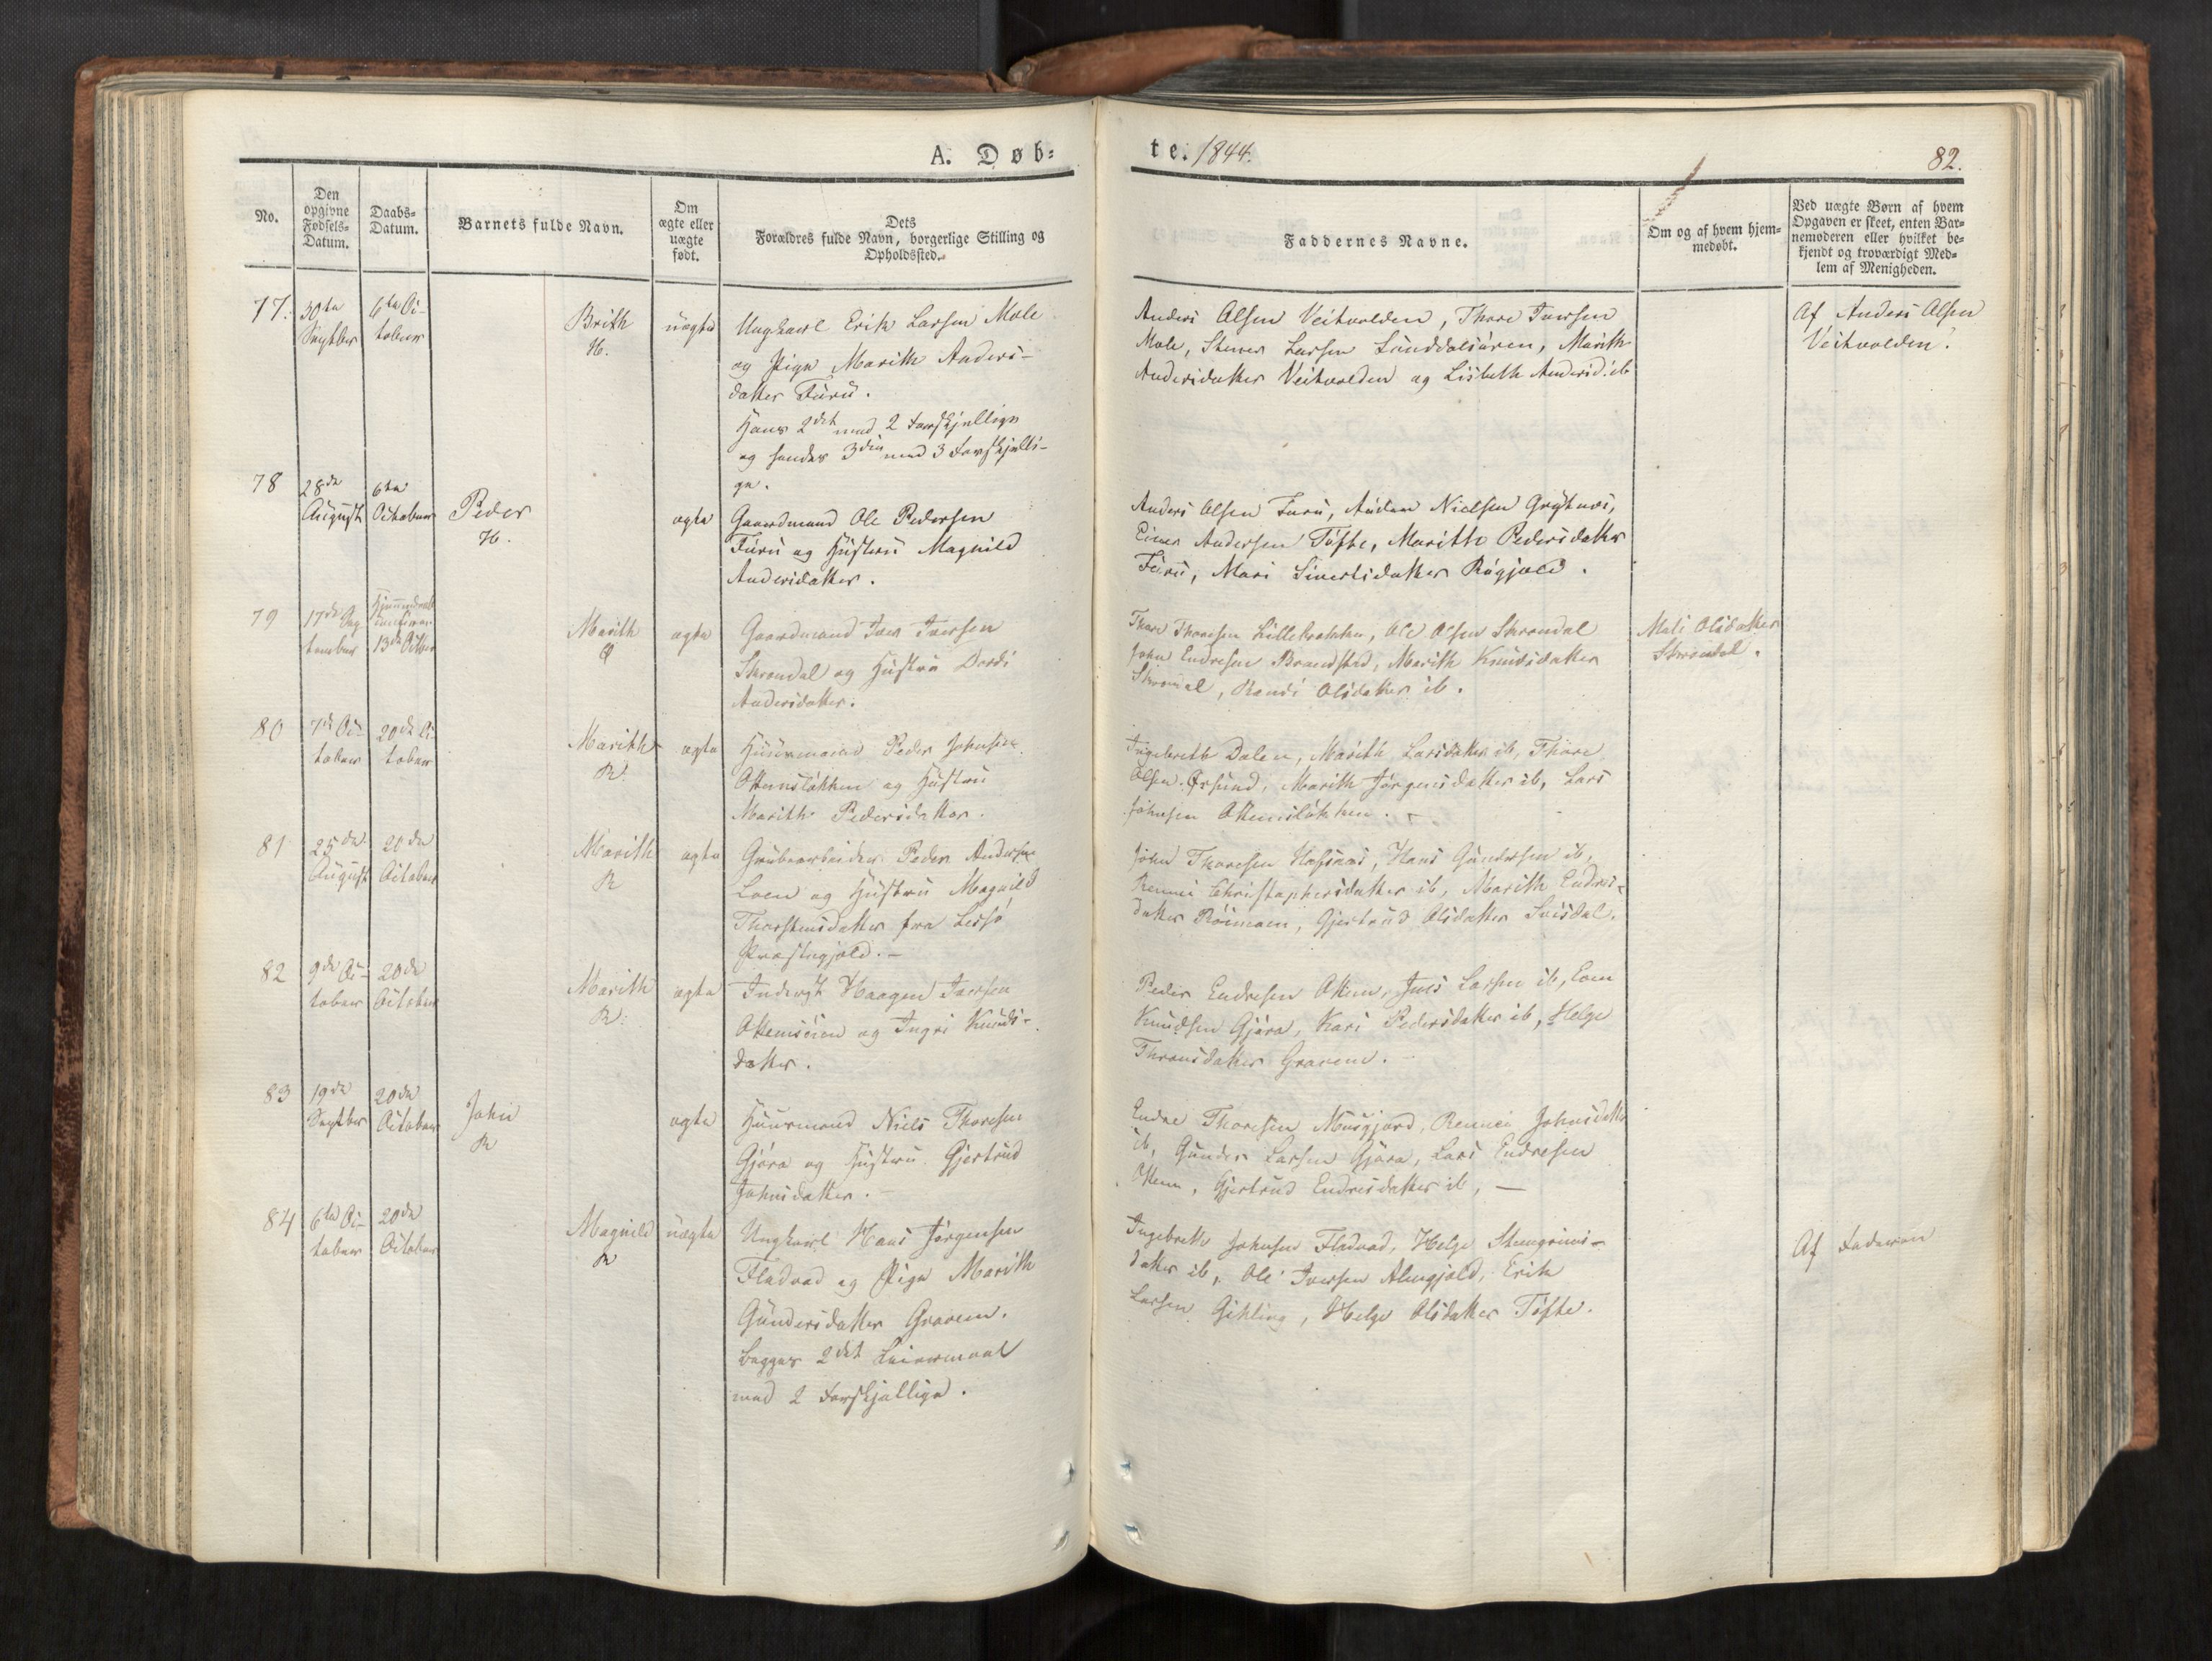 A. Døb=
te. 1844.
82.
No.
Den opgivne Fødsels-Datum.
Daabs-Datum.
Barnets fulde Navn.
Om ægte eller uægte født.
Dets Forældres fulde Navn, borgerlige Stilling og Opholdssted.
Faddernes Navne.
Om og af hvem hjem=
medøbt.
Ved uægte Børn af hvem
Opgaven er skeet, enten Bar=
nemoderen eller hvilket be=
kjendt og troværdigt Med=
lem af Menigheden.
77. 30te Septbr 6te Octobr Brith H. uægte
Ungkarl Erik Larsen Mole
og Pige Marith Anders-
datter Furu.
Hans 2det med 2 Forskjellige
og hendes 3die med 3 Forskjelli-
ge.
Anders Olsen Veitvolden, Thore Iversen
Mole, Larsen Sunddalsøren, Marith
Andersdatter Veitvolden og Lisbeth Andersd. ib
Af Anders Olsen
Veitvolden.
78 28de August 6te October Peder H. ægte
Gaardmand Ole Pedersen
Furu og Hustru Magnild
Andersdatter.
Anders Olsen Furu, Nielsen
Einer Andersen Tøfte, Marith Pedersdatter
Furu, Mari Sivertsdatter
79 17de September 13de Octbr Marith Ø ægte
Gaardmand Iver Iversen
Skrondal og Hustru Dordi
Andersdatter.
Thore Thoresen Ole Olsen Skrondal
John Endresen Brandstad, Marith Knudsdatter
Skrondal, Randi Olsdatter ib.
Mali Olsdatter
Skrondal.
80 7de October 20de October Marith R. ægte
Huusmand Peder Johnsen
Ottemsløkken og Hustru
Marith Pedersdatter.
Ingebreth Dalen, Marith Larsdatter ib, Thore
Olsen Øxsund, Marith Jørgensdatter ib, Lars
Johnsen Ottemsløkken.
81 25de August 20de October Marith R ægte
Grubearbeider Peder Andersen
Loen og Hustru Magnild
Thorstensdatter fra Lessø
Præstegjeld. -
John Thoresen Hafsaas, Hans Gundersen ib,
Rennei Christophersdatter ib, Marith Endres-
datter Gjertrud Olsdatter
82 9de October 20de October Marith R. ægte
Inderst Haagen Iversen
Ottemseien og Ingri Knuds-
datter.
Peder Endresen Ottem, Larsen ib,
Knudsen Gjøra, Kari Pedersdatter ib, Helge
Thronsdatter Gravem.
83 19de Septbr 20de October John R ægte
Huusmand Niels Thoresen
Gjøra og Hustru Gjertrud
Johnsdatter. -
Endre Thoresen Musgjerd, Rennei Johnsdatter
ib, Gunder Larsen Gjøra, Lars Endresen
Ottem, Gjertrud Endresdatter ib, -
84 6te October 20de October Magnild R uægte
Ungkarl Hans Jørgensen
Fladvad og Pige Marith
Gundersdatter Gravem.
Begges 2det Leiermaal
med 2 Forskjellige.
Ingebreth Johnsen Fladvad, Helge Steengrims-
datter ib, Ole Iversen Almgjeld, Erik
Larsen Gikling, Helge Olsdatter Tøfte.
Af Faderen